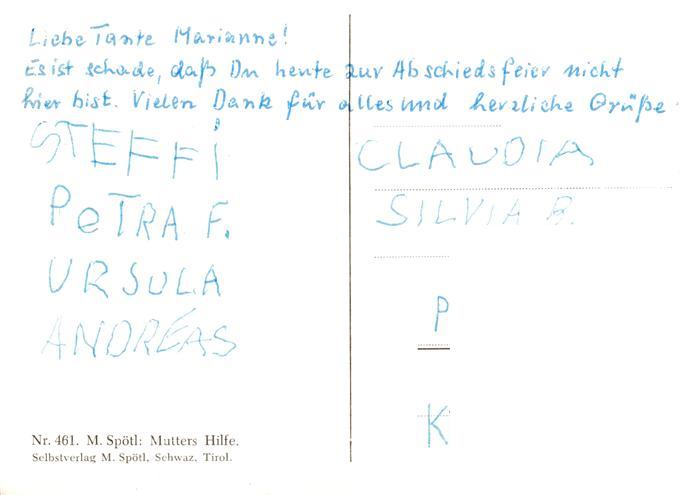 Liebe Tante Marianne!
Es ist schade, daß Du heute zur Abschiedsfeier nicht
hier bist. Vielen Dank für alles und herzliche Grüße.
STEFFI
PeTRA F.
URSULA
ANDREAS
CLAUDIA
SILVIA B.
P
K
Nr. 461. M. Spötl: Mutters Hilfe.
Selbstverlag M. Spötl, Schwaz, Tirol.